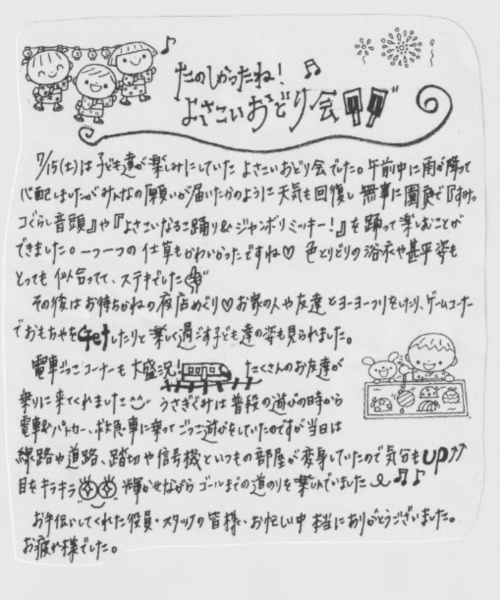 たのしかったね!
よさこいおどり会
7/15(土)は子ども達が楽しみにしていた よさこいおどり会でした。午前中に雨が降って
心配しましたがみんなの願いが届いたかのように天気も回復し 無事に園庭で『すみっ
コぐらし音頭』や『よさこいなるこ踊り&ジャンボリミッキー!』を踊って楽しむことが
できました。一つ一つの仕草もかわいかったですね♡ 色とりどりの浴衣や甚平姿も
とっても似合ってて、ステキでした
その後はお待ちかねの夜店めぐり♡お家の人や友達とヨーヨーつりをしたり、ゲームコーナー
でおもちゃをGetしたりと楽しく過ごす子ども達の姿も見られました。
電車ごっこコーナーも大盛況! たくさんのお友達が
乗りに来てくれました うさぎぐみは普段の遊びの時から
電車やパトカー、救急車に乗ってごっこ遊びをしていたのですが当日は
線路や道路、踏切や信号機といつもの部屋が変身していたので気分もup↑↑
目をキラキラ 輝かせながら ゴールまでの道のりを楽しんでいました♪♪
お手伝いしてくれた役員・スタッフの皆様・お忙しい中 本当にありがとうございました。
お疲れ様でした。